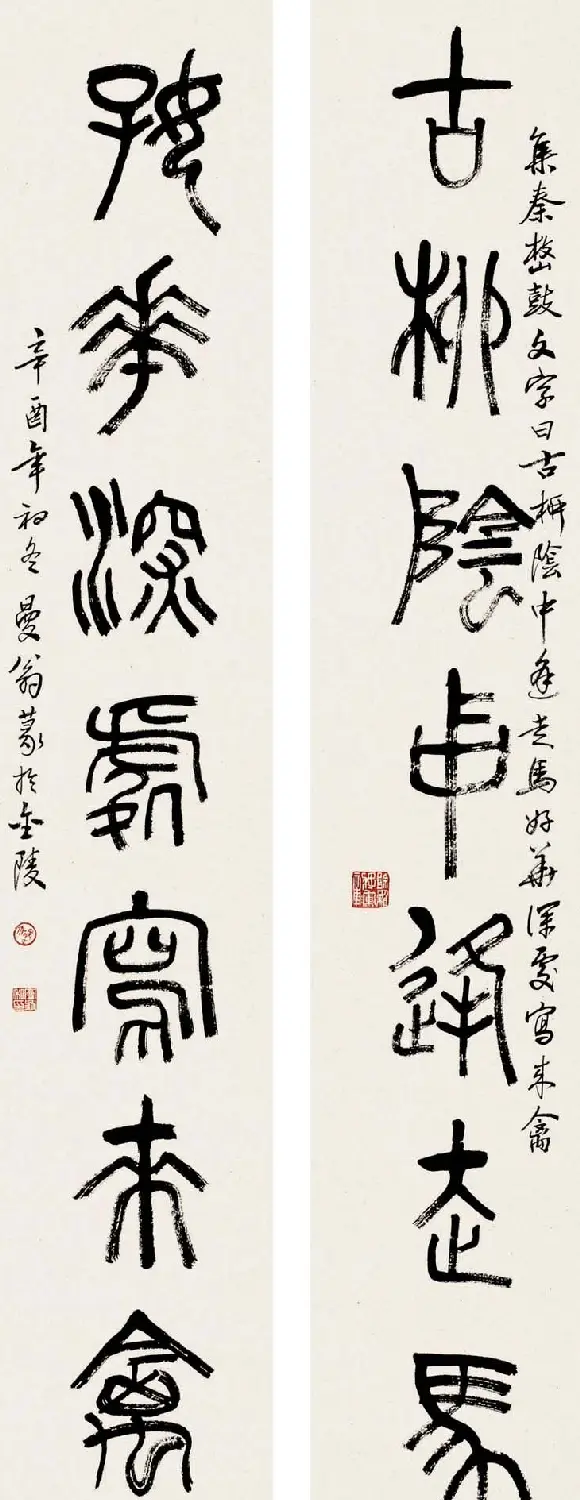 古柳陰中逢走馬
集秦𥐻鼓文字曰古柳陰中逢走馬好華深處寫來禽
好華深處寫來禽
辛酉年初冬曼翁篆於金陵